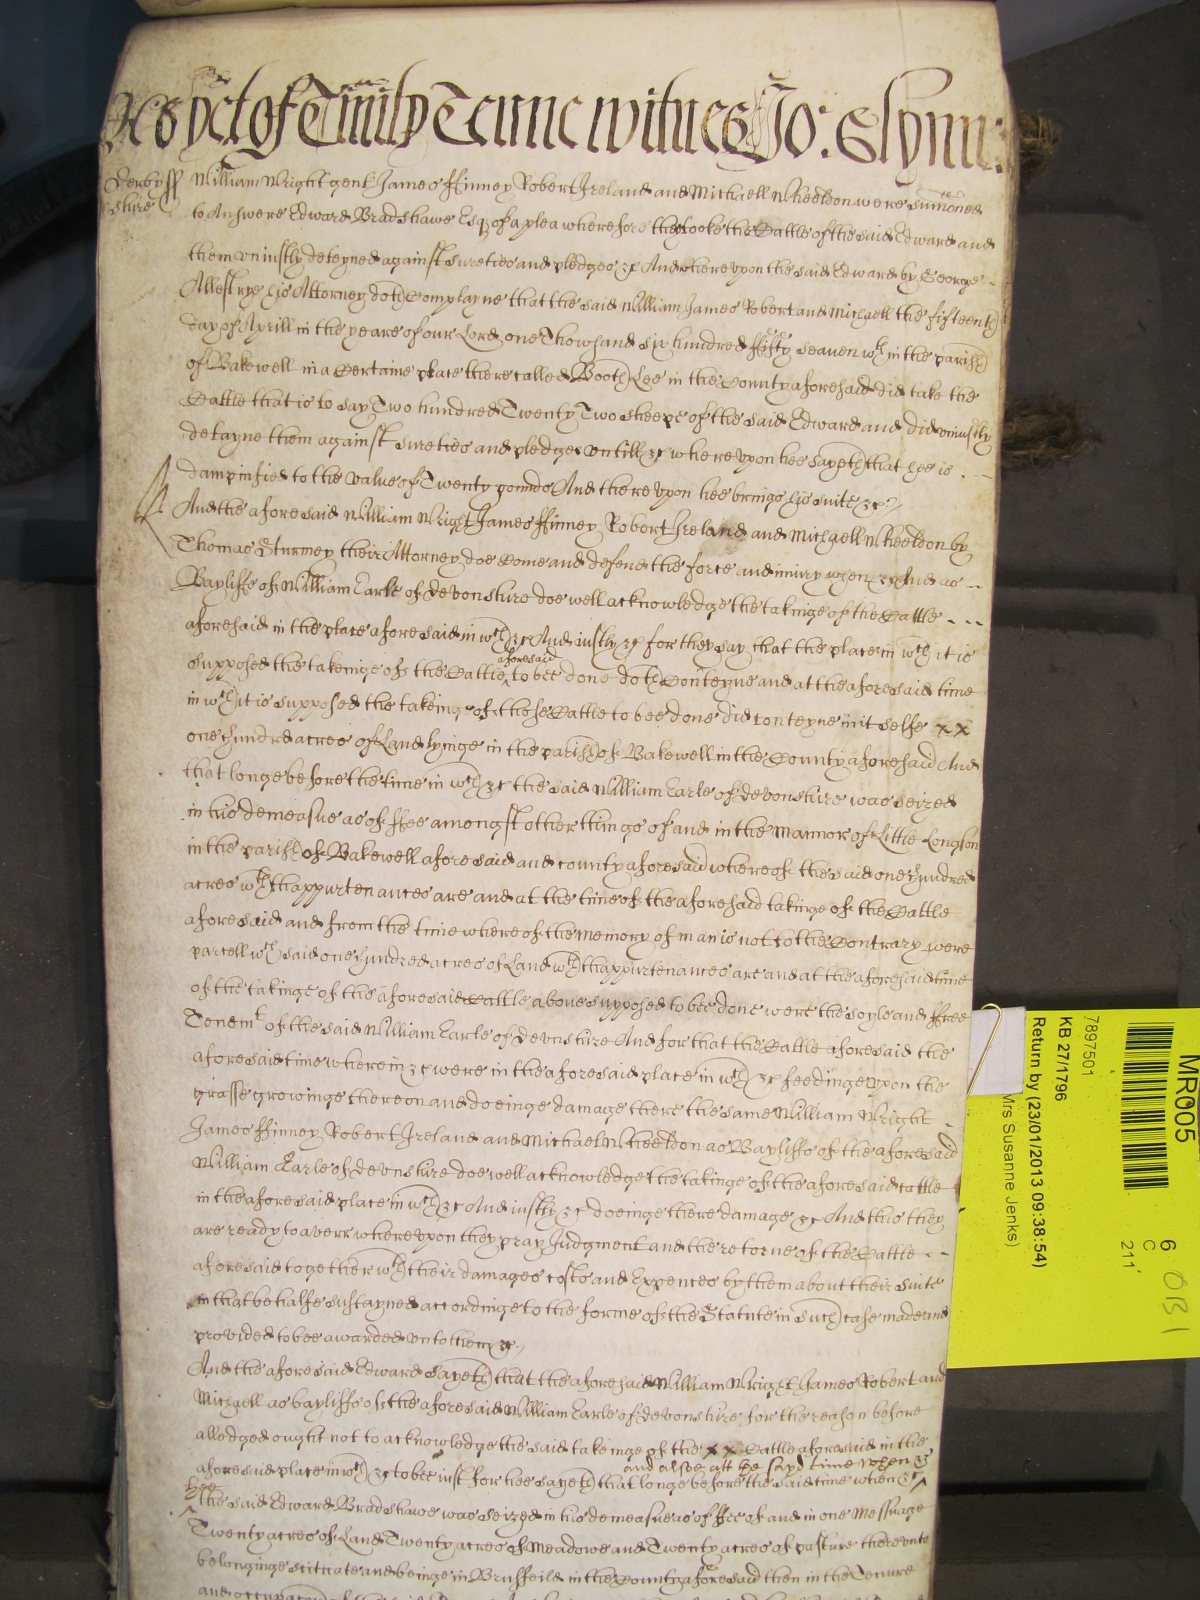 As yet of Trinity Terme witnes Jo: Glynn:
Derby ss
shire
William Wright gent James Ffinney Robert Ireland and Michaell Wheeldon were sumoned
to Answere Edward Bradshawe Esqr of a plea wherefore they tooke the Cattle of the said Edward and
them uniustly deteyned against sureties and pledges &c And whereupon the said Edward by George
Allestrye his Attorney doth Complayne that the said William James Robert and Michaell the fifteenth
day of Aprill in the yeare of our Lord one Thowsand six hundred fifty seaven wth in the parish
of Bakewell in a Certaine place there called Booth Lee in the County aforesaid did take the
Cattle that is to say Two hundred Twenty Two sheepe of the said Edward and did uniustly
detayne them against sureties and pledges untill &c whereupon hee sayeth that hee is
dampnified to the value of Twenty pounds And thereupon hee brings his suite &c
And the aforesaid William Wright James Ffinney Robert Ireland and Michaell Wheeldon by
Thomas Sturmey their Attorney doe Come and defend the force and iniury when &c And as
Bayliffs of William Earle of Devonshire doe well acknowledge the takinge of the Cattle
aforesaid in the place aforesaid in wch &c And iustly &c for they say that the place in wch it is
supposed the takeinge of the Cattle aforesaid to bee done doth Conteyne and at the aforesaid time
in wch it is supposed the takeing of those Cattle to bee done did conteyne in it selfe x x
one hundred acres of Land lyinge in the parish of Bakewell in the County aforesaid And
that longe before the time in wch &c the said William Earle of Devonshire was seized
in his demeasne as of ffee amongst other things of and in the Mannor of Little Longson
in the parish of Bakewell aforesaid and county aforesaid whereof the said one hundred
acres wth thappurtenances are and at the time of the aforesaid takinge of the Cattle
aforesaid and from the time whereof the memory of man is not to the Contrary were
parcell wch said one hundred acres of Land wth thappurtenances are and at the aforesaid time
of the takinge of the aforesaid Cattle above supposed to bee done were the soyle and ffree
Tenemt of the said William Earle of Devonshire And for that the Cattle aforesaid the
aforesaid time wherein &c were in the aforesaid place in wch &c feedinge upon the
grasse growinge thereon and doeinge damage there the same William Wright
James Ffinney Robert Ireland and Michael Wheeldon as Bayliffs of the aforesaid
William Earle of Devonshire doe well acknowledge the takinge of the aforesaid cattle
in the aforesaid place in wch &c And iustly &c doeinge there damage &c And this they
are ready to averr whereupon they pray Judgment and the retorne of the Cattle
aforesaid together wth their damages costs and Expences by them about their suite
in that behalfe sustayned accordinge to the forme of the Statute in such case made and
provided to bee awarded unto them &c
And the aforesaid Edward sayeth that the aforesaid William Wright James Robert and
Michaell as bayliffs of the aforesaid William Earle of Devonshire for the reason before
alledged ought not to acknowledge the said takeinge of the x x Cattle aforesaid in the
and alsoe att the sayd time when &c
aforesaid place in wch &c to bee iust for hee sayeth that longe before the said time when &c
hee
the said Edward Bradshawe was seized in his demeasne as of ffee of and in one Messuage
Twenty acres of Land Twenty acres of Meadowe and Twenty acres of pasture thereunto
belonginge scituate and beinge in Bruffeild in the County aforesaid then in the Tenure
and occupacon of the said
MR005
6
C
211
7897501
KB 27/1796
Return by (23/01/2013 09:38:54)
Mrs Susanne Jenks)